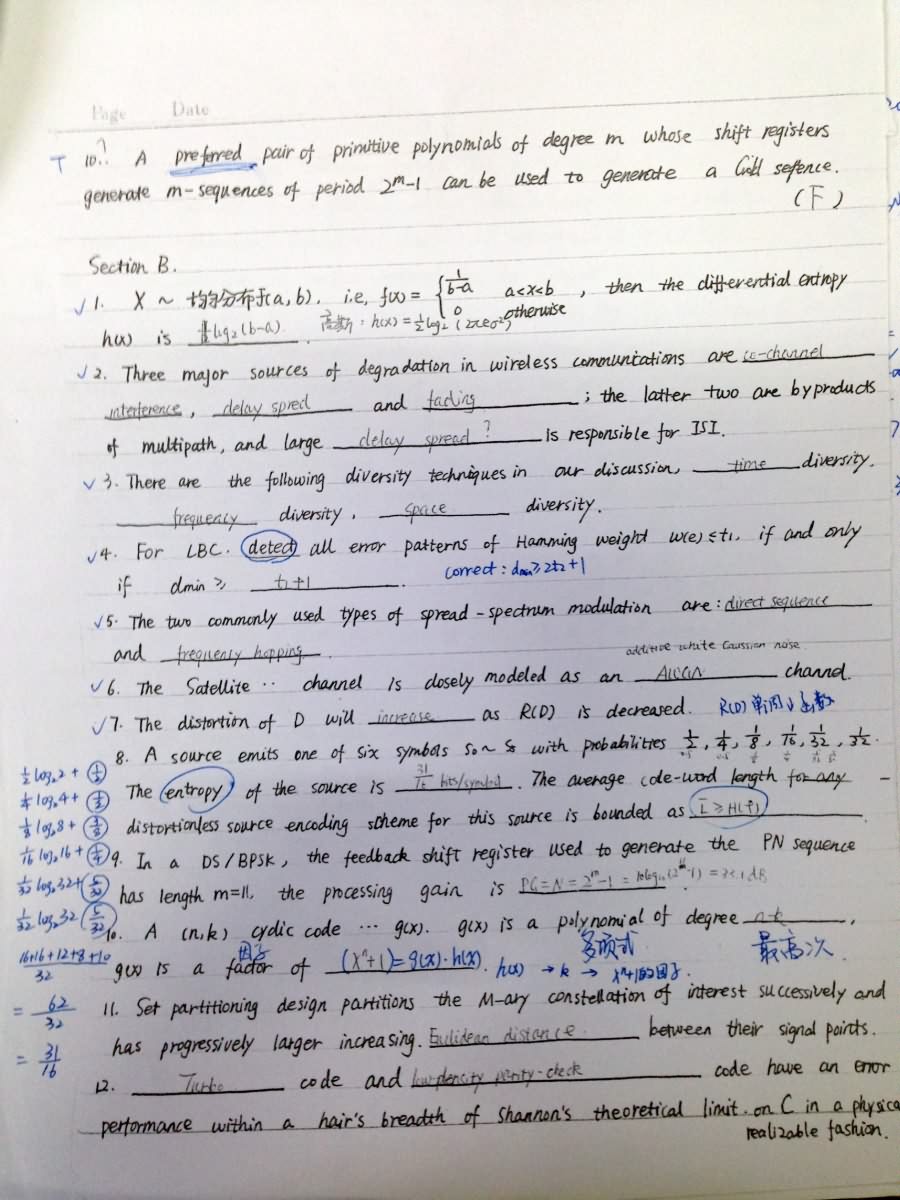 Page Date
T 10.? A preferred pair of primitive polynomials of degree m whose shift registers
generate m-sequences of period 2^m-1 can be used to generate a
(下)
Section B.
√ 1. X ~ 均匀分布f(a,b). i.e, f(x) = { 1/(b-a) a<x<b , then the differential entropy
0 otherwise
h(x) is log₂(b-a). 高斯: h(x) = 1/2 log₂(2πeσ²)
√ 2. Three major sources of degradation in wireless communications are co-channel
interference, delay spred and fading ; the latter two are byproducts
of multipath, and large delay spread ? is responsible for ISI.
√ 3. There are the following diversity techniques in our discussion, time diversity.
frequency diversity, space diversity.
√ 4. For LBC. detect all error patterns of Hamming weight w(e) ≤ t₁. if and only
if dmin ≥ t₁+1 . correct: dmin ≥ 2t₂+1
√ 5. The two commonly used types of spread-spectrum modulation are: direct sequence
and frequency hopping .
additive white Gaussian noise
√ 6. The Satellite ·· channel is closely modeled as an AWGN channel.
√ 7. The distortion of D will increase as R(D) is decreased. R(D) 单调↓函数
8. A source emits one of six symbols S₀~S₅ with probabilities 1/2, 1/4, 1/8, 1/16, 1/32, 1/32.
The entropy of the source is 31/16 bits/symbol. The average code-word length for any
distortionless source encoding scheme for this source is bounded as L̄ ≥ H(f)
9. In a DS/BPSK, the feedback shift register used to generate the PN sequence
has length m=11, the processing gain is PG = N = 2^m-1 = 10log₁₀(2^11-1) = 33.1 dB
10. A (n,k) cyclic code ··· g(x). g(x) is a polynomial of degree n-k .
因子 多项式 最高次
g(x) is a factor of (x^n+1) = g(x)·h(x). h(x) → k → x^n+1的因子.
11. Set partitioning design partitions the M-ary constellation of interest successively and
has progressively larger increasing. Eulidean distance between their signal points.
12. Turbo code and low-plencity parity-check code have an error
performance within a hair's breadth of Shannon's theoretical limit. on C in a physica
realizable fashion.
1/2 log₂2 + (1/2)
1/4 log₂4 + (1/2)
1/8 log₂8 + (3/8)
1/16 log₂16 + (1/4)
1/32 log₂32 + (5/32)
1/32 log₂32 (5/32)
(16+16+12+8+10)/32
= 62/32
= 31/16